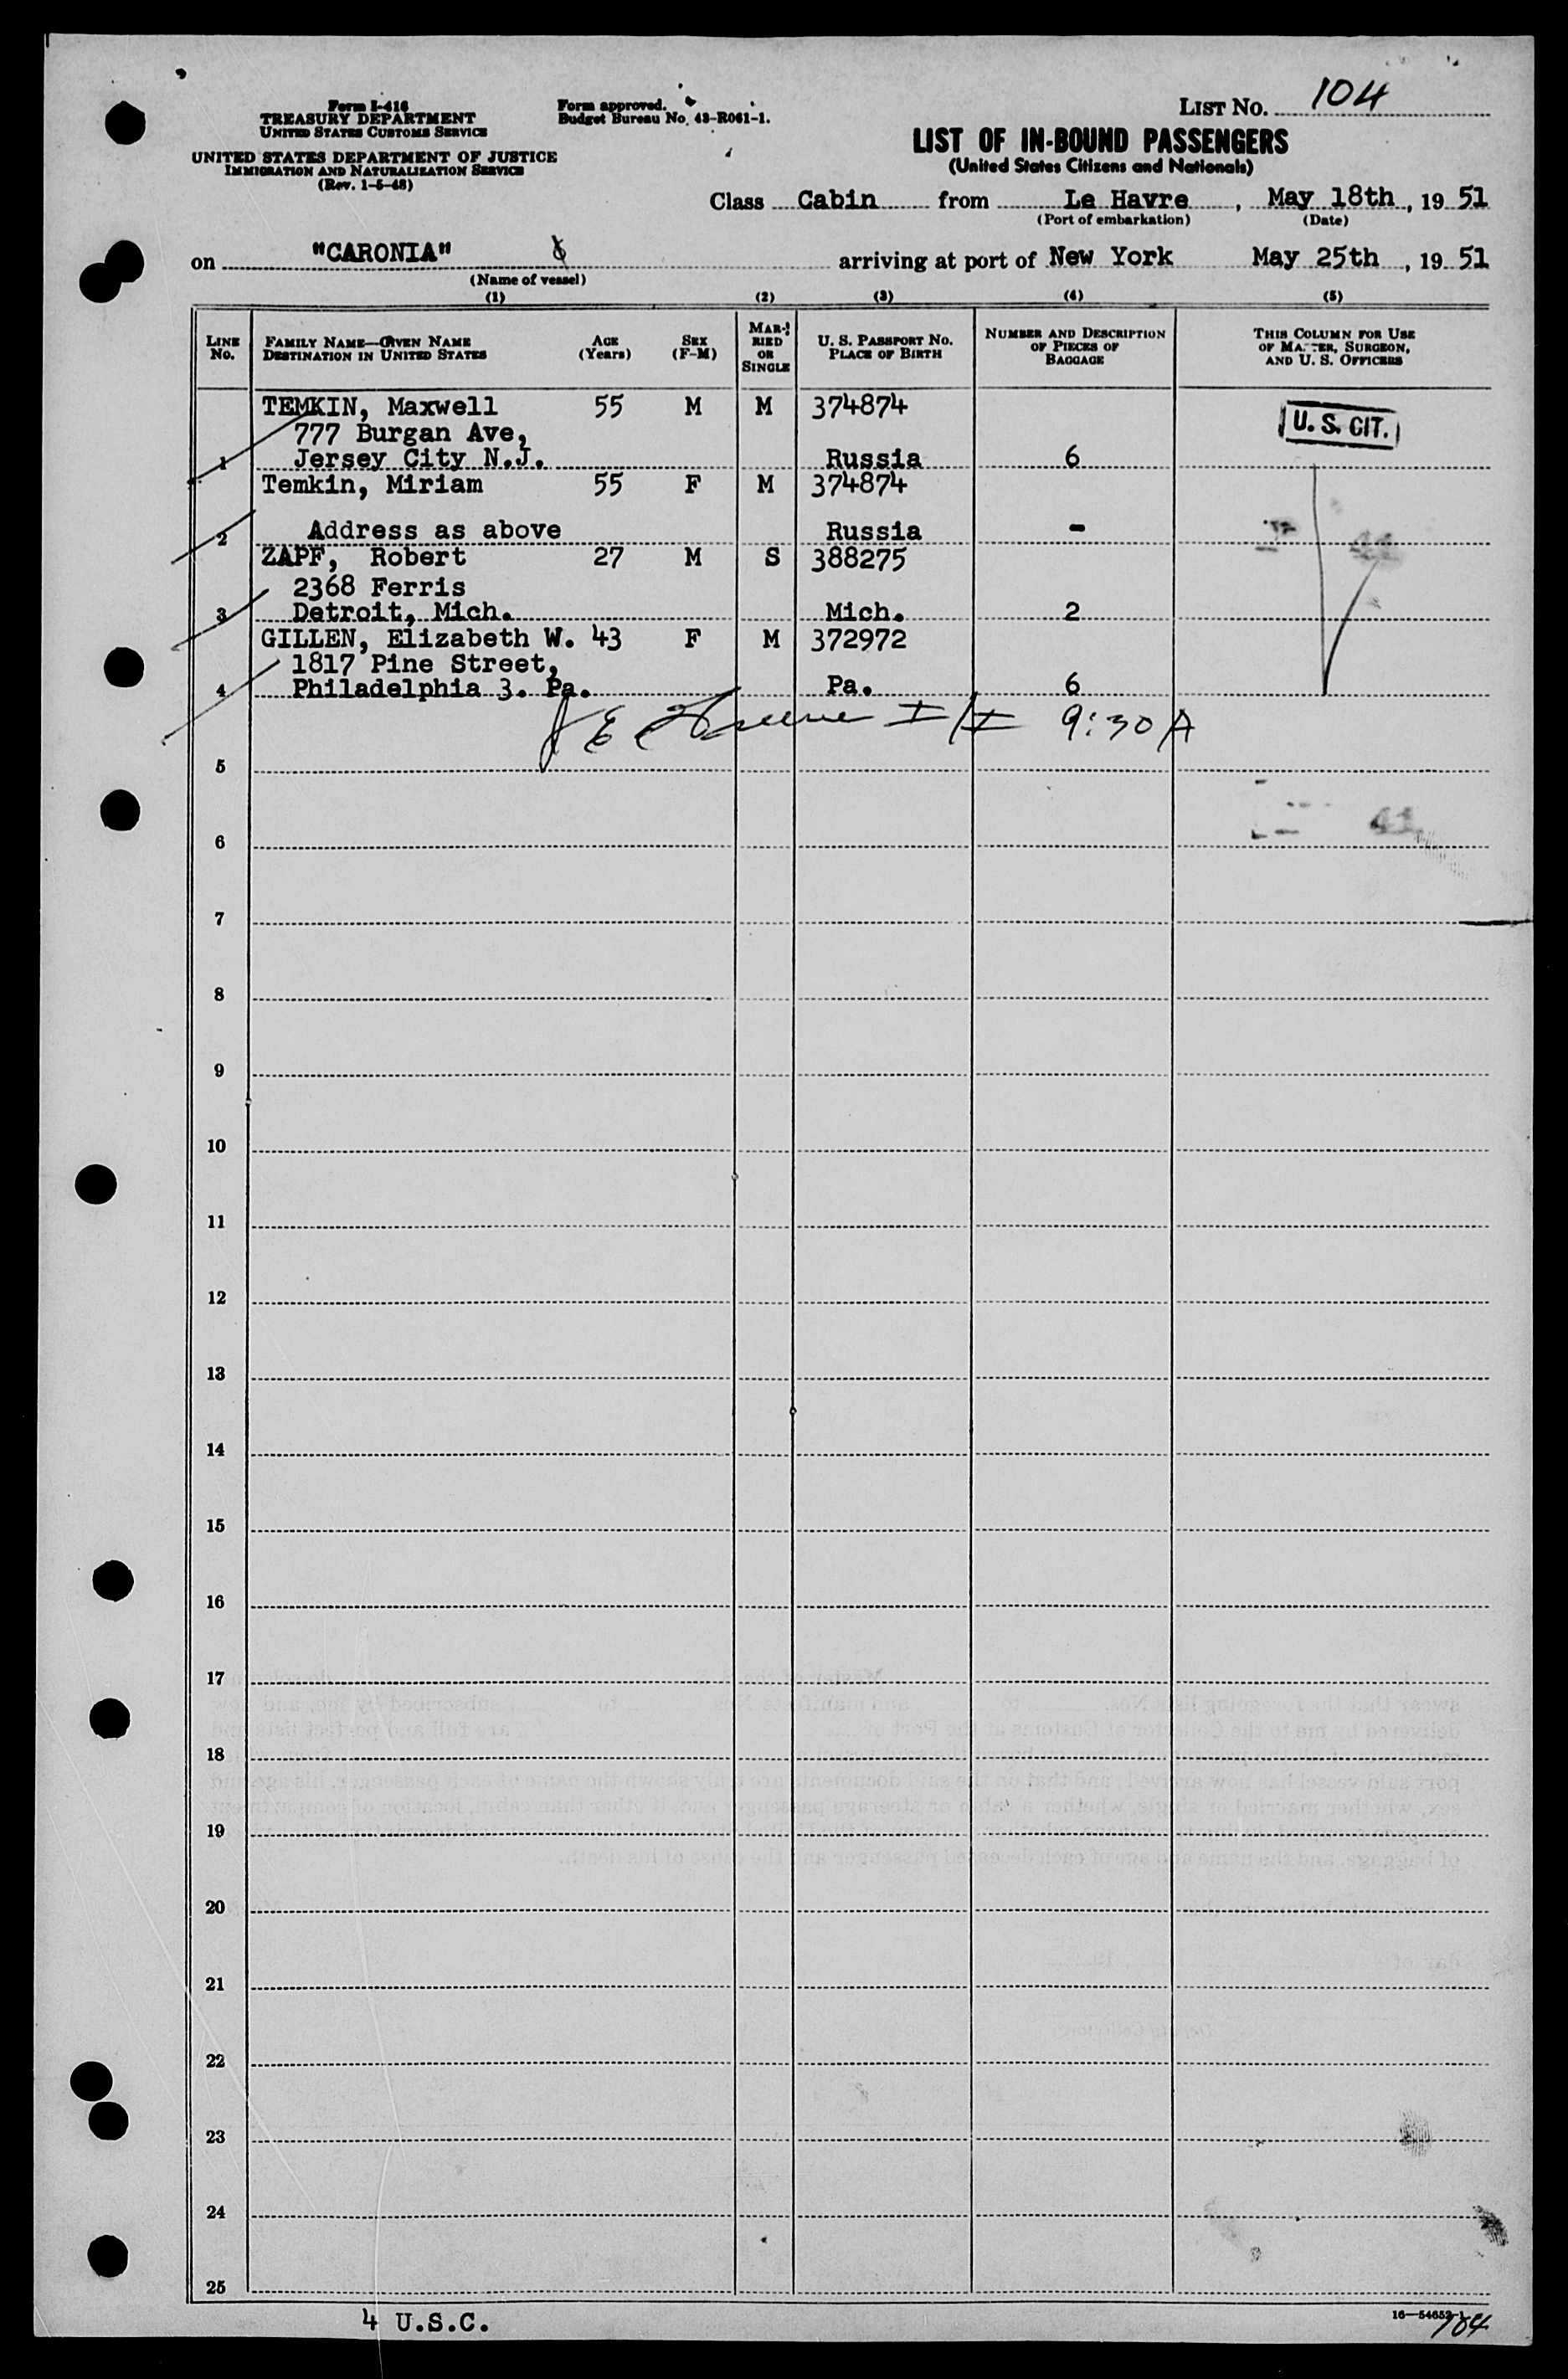 Form I-416
TREASURY DEPARTMENT
UNITED STATES CUSTOMS SERVICE
UNITED STATES DEPARTMENT OF JUSTICE
IMMIGRATION AND NATURALIZATION SERVICE
(Rev. 1-5-48)
Form approved.
Budget Bureau No. 43-R061-1.
LIST NO. 104
LIST OF IN-BOUND PASSENGERS
(United States Citizens and Nationals)
Class Cabin from Le Havre, May 18th, 19 51
(Port of embarkation) (Date)
on "CARONIA" arriving at port of New York May 25th, 19 51
(Name of vessel)
(1) (2) (3) (4) (5)
LINE No. FAMILY NAME—GIVEN NAME DESTINATION IN UNITED STATES AGE (Years) SEX (F-M) MARRIED OR SINGLE U. S. PASSPORT No. PLACE OF BIRTH NUMBER AND DESCRIPTION OF PIECES OF BAGGAGE THIS COLUMN FOR USE OF MASTER, SURGEON, AND U. S. OFFICERS
TEMKIN, Maxwell 55 M M 374874 U. S. CIT.
777 Burgan Ave,
1 Jersey City N.J. Russia 6
Temkin, Miriam 55 F M 374874
2 Address as above Russia -
ZAPF, Robert 27 M S 388275
2368 Ferris
3 Detroit, Mich. Mich. 2
GILLEN, Elizabeth W. 43 F M 372972
1817 Pine Street,
4 Philadelphia 3. Pa. Pa. 6
9:30 A
5
6
41
7
8
9
10
11
12
13
14
15
16
17
18
19
20
21
22
23
24
25
4 U.S.C.
104